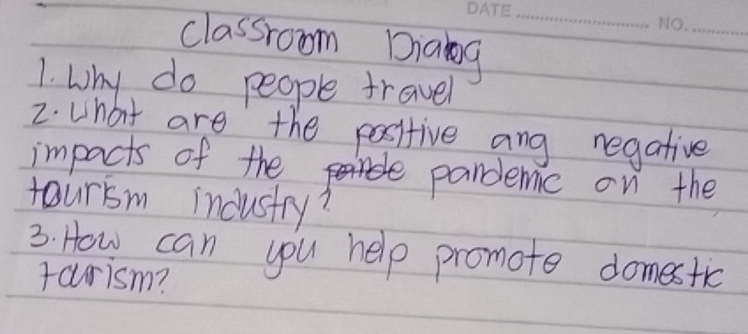 DATE NO.
Classroom Dialog
1. Why do people travel
2. What are the positive ang negative
impacts of the pandemic on the
tourism industry?
3. How can you help promote domestic
tourism?